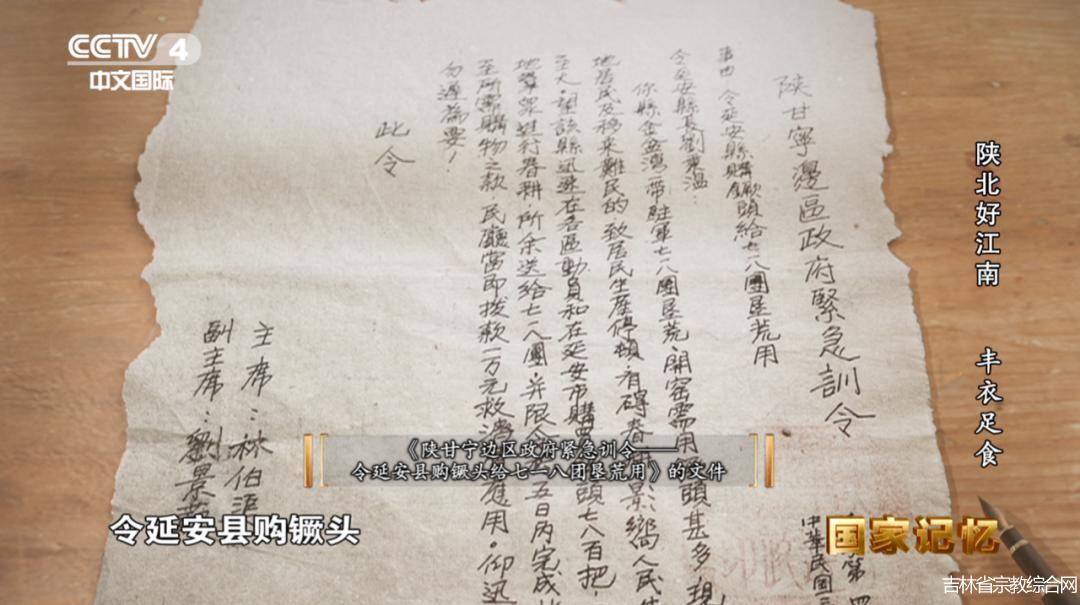 CCTV 4
中文国际
陝甘寧邊區政府緊急訓令
第四
中華民國三
事由 令延安縣購钁頭給七一八團墾荒用
令延安縣長劉秉温:
你縣金盆灣一帶駐軍七一八團墾荒、開窑需用頭甚多,現
地居民及移來難民的,致居民生產停頓,有碍春影嚮人民生
至大,望該縣迅速在各區動員和在延安市購頭七八百把,
地羣眾進行春耕,所余送給七一八團,并限令五日內完成
至所需購物之款,民廳當即撥款一万元救濟應用。仰迅
勿違為要!
此令
主席:林伯
副主席:劉景
陕北好江南 丰衣足食
《陕甘宁边区政府紧急训令——
令延安县购镢头给七一八团垦荒用》的文件
令延安县购镢头
国家记忆
吉林省宗教综合网